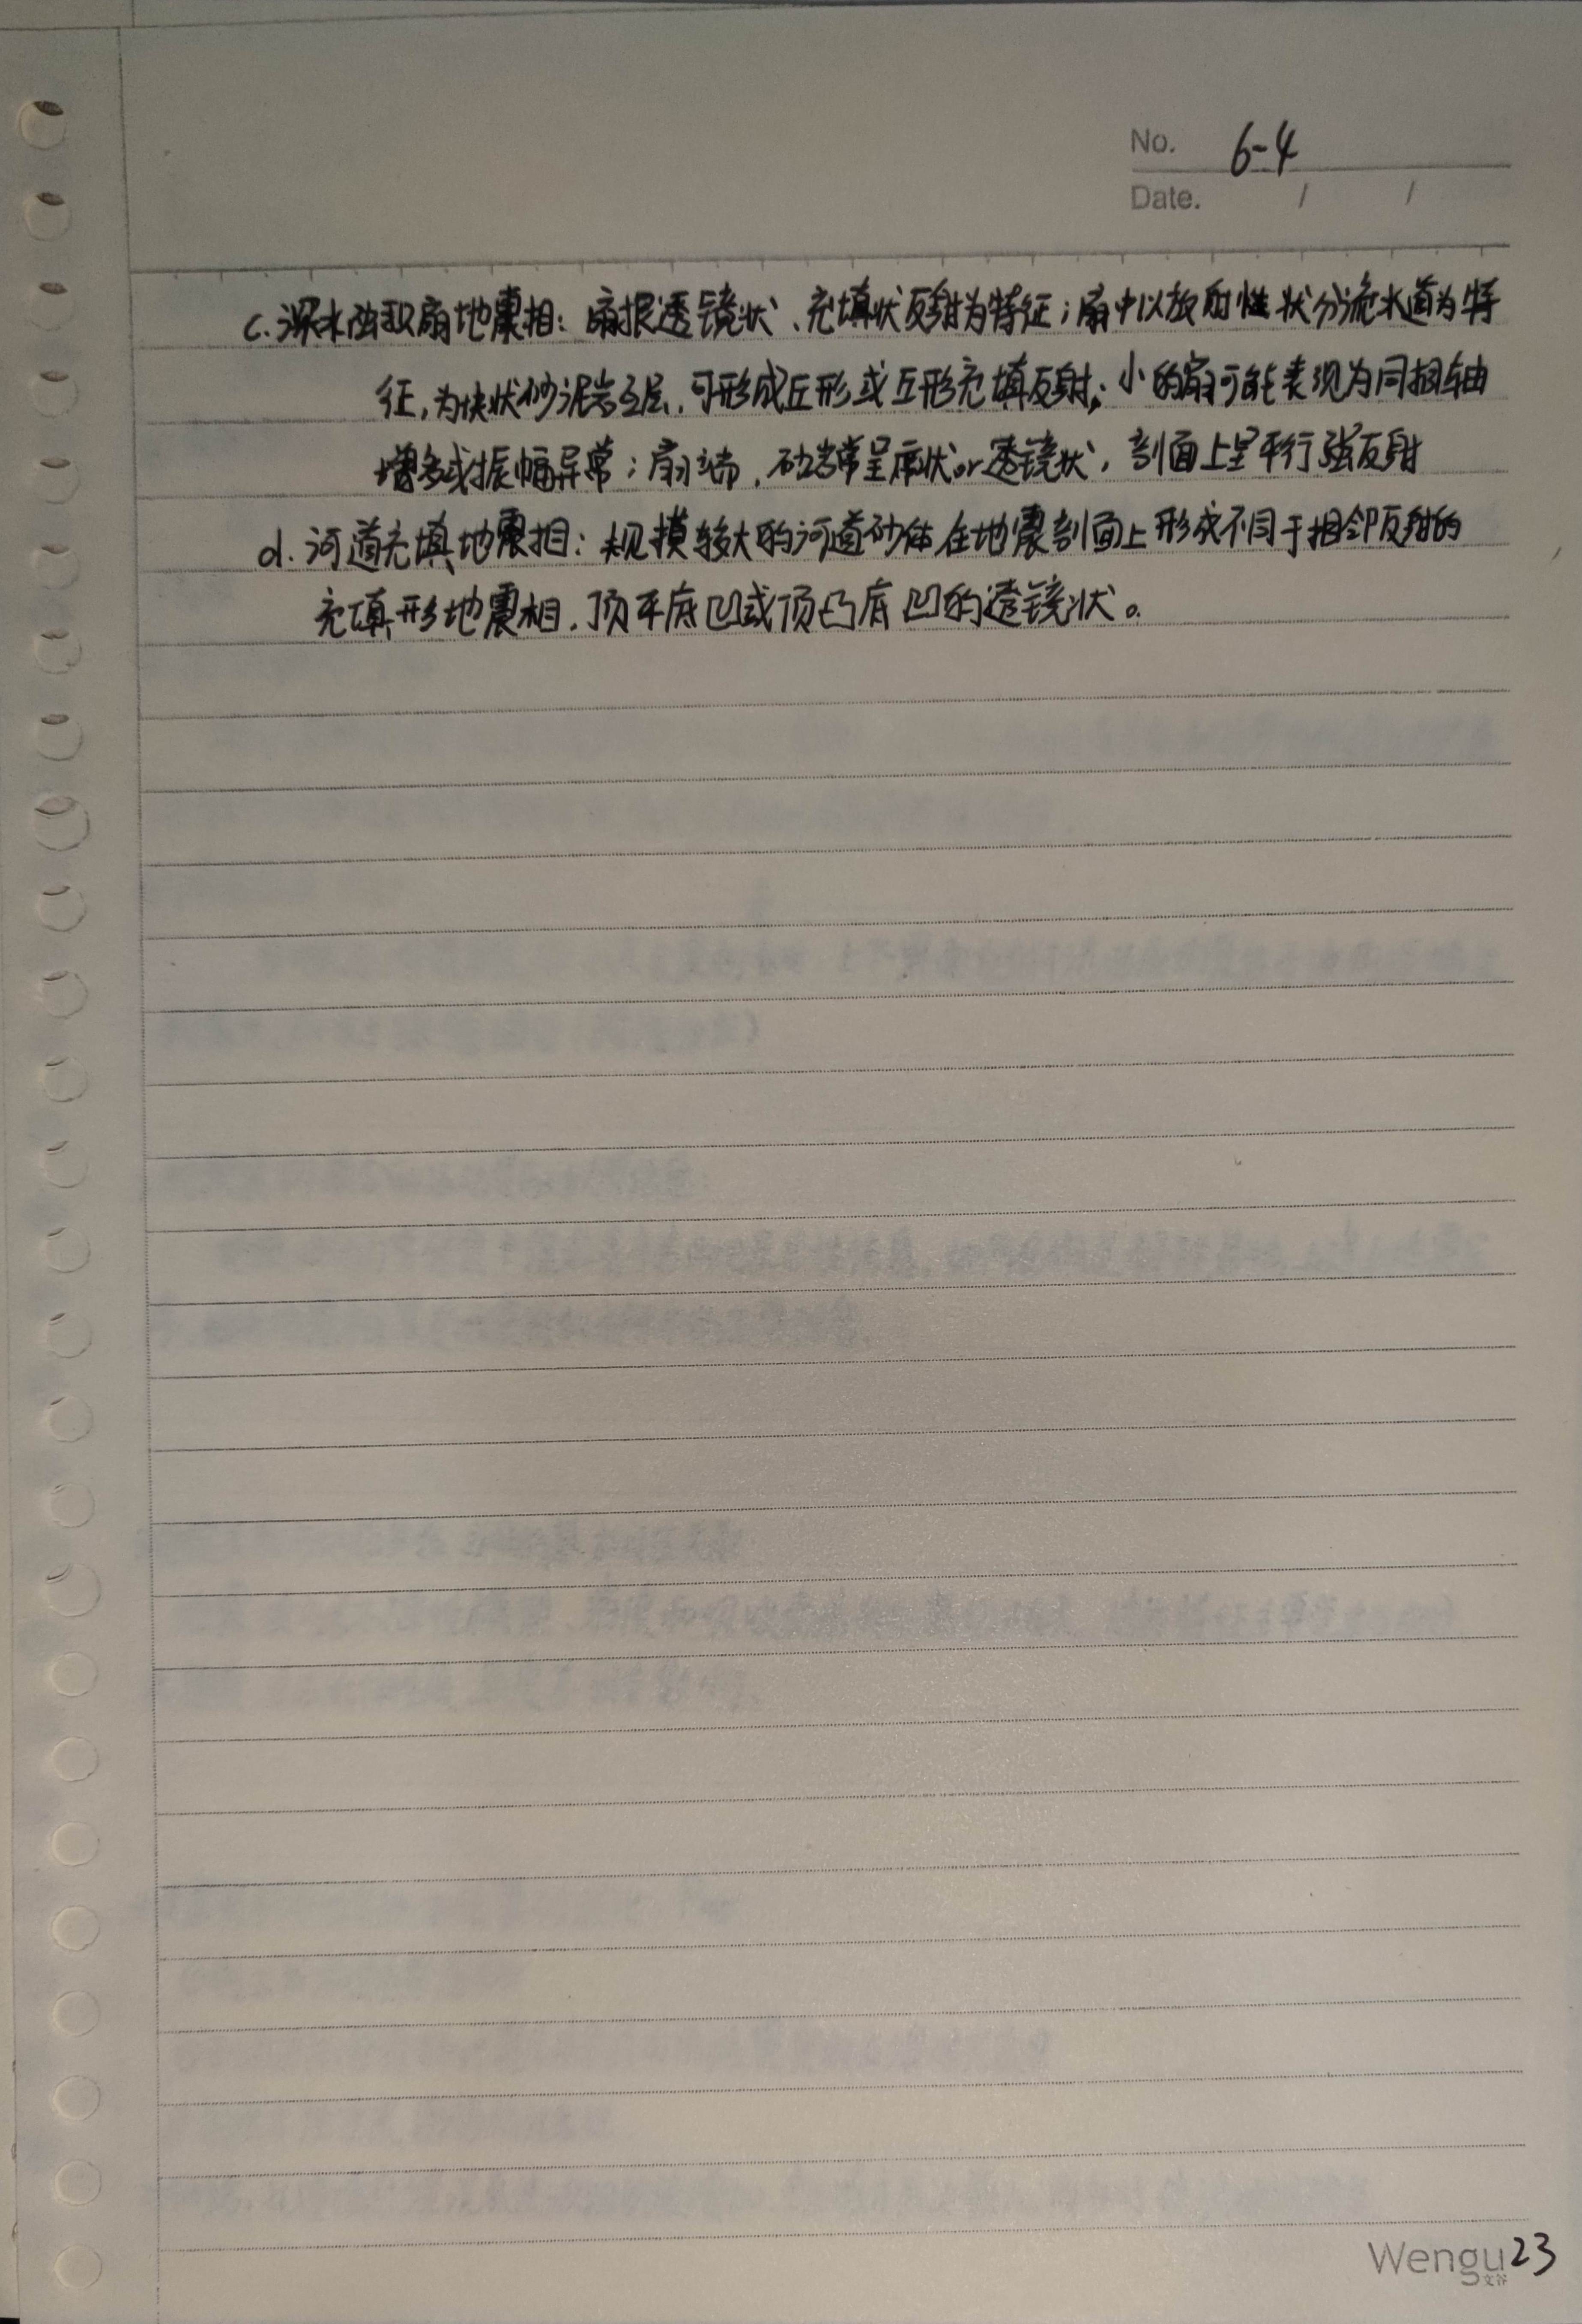 No. 6-4
Date. / /
c. 深水浊积扇地震相：扇根透镜状、充填状反射为特征；扇中以放射性状分流水道为特
征，为块状砂泥岩互层，可形成丘形或丘形充填反射；小的扇可能表现为同相轴
增多或振幅异常；扇端，砂岩常呈席状or透镜状，剖面上呈平行强反射
d. 河道充填地震相：规模较大的河道砂体在地震剖面上形成不同于相邻反射的
充填形地震相，顶平底凹或顶凸底凹的透镜状。
Wengu 23
文谷